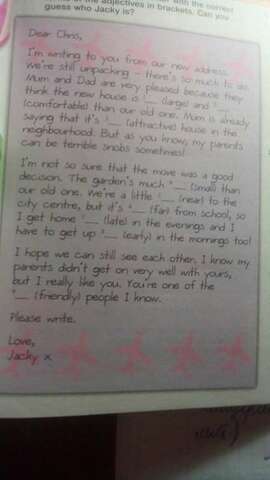 of the adjectives in brackets. Can you
guess who Jacky is?
Dear Chris,
I'm writing to you from our new address.
We're still unpacking – there's so much to do.
Mum and Dad are very pleased because they
think the new house is ¹__ (large) and ²__
(comfortable) than our old one. Mum is already
saying that it's ³__ (attractive) house in the
neighbourhood. But as you know, my parents
can be terrible snobs sometimes!
I'm not so sure that the move was a good
decision. The garden's much ⁴__ (small) than
our old one. We're a little ⁵__ (near) to the
city centre, but it's ⁶__ (far) from school, so
I get home ⁷__ (late) in the evenings and I
have to get up ⁸__ (early) in the mornings too!
I hope we can still see each other. I know my
parents didn't get on very well with yours,
but I really like you. You're one of the
⁹__ (friendly) people I know.
Please write.
Love,
Jacky x